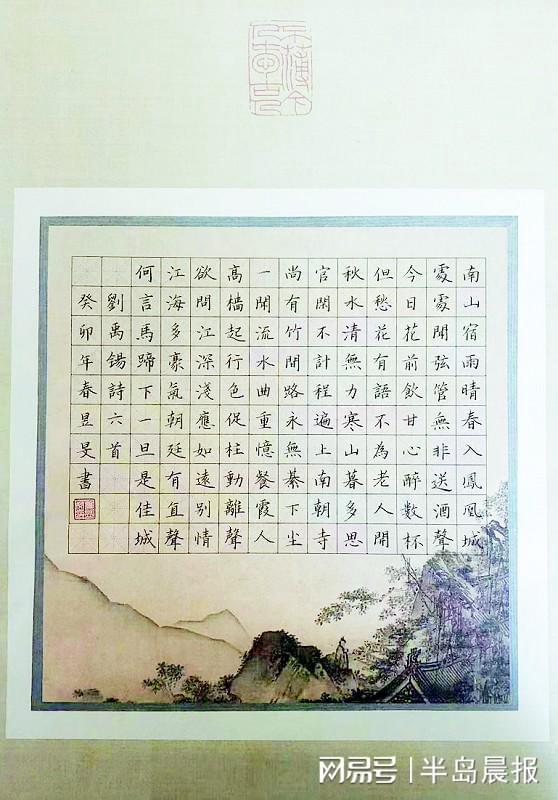 南山宿雨晴春入鳳凰城
處處聞弦管無非送酒聲
今日花前飲甘心醉數杯
但愁花有語不為老人開
秋水清無力寒山暮多思
官閑不計程遍上南朝寺
尚有竹間路永無綦下尘
一聞流水曲重憶餐霞人
高檣起行色促柱動離聲
欲問江深淺應如遠別情
江海多豪氣朝廷有直聲
何言馬蹄下一旦是佳城
劉禹錫詩六首
癸卯年春昱旻書
网易号 | 半岛晨报